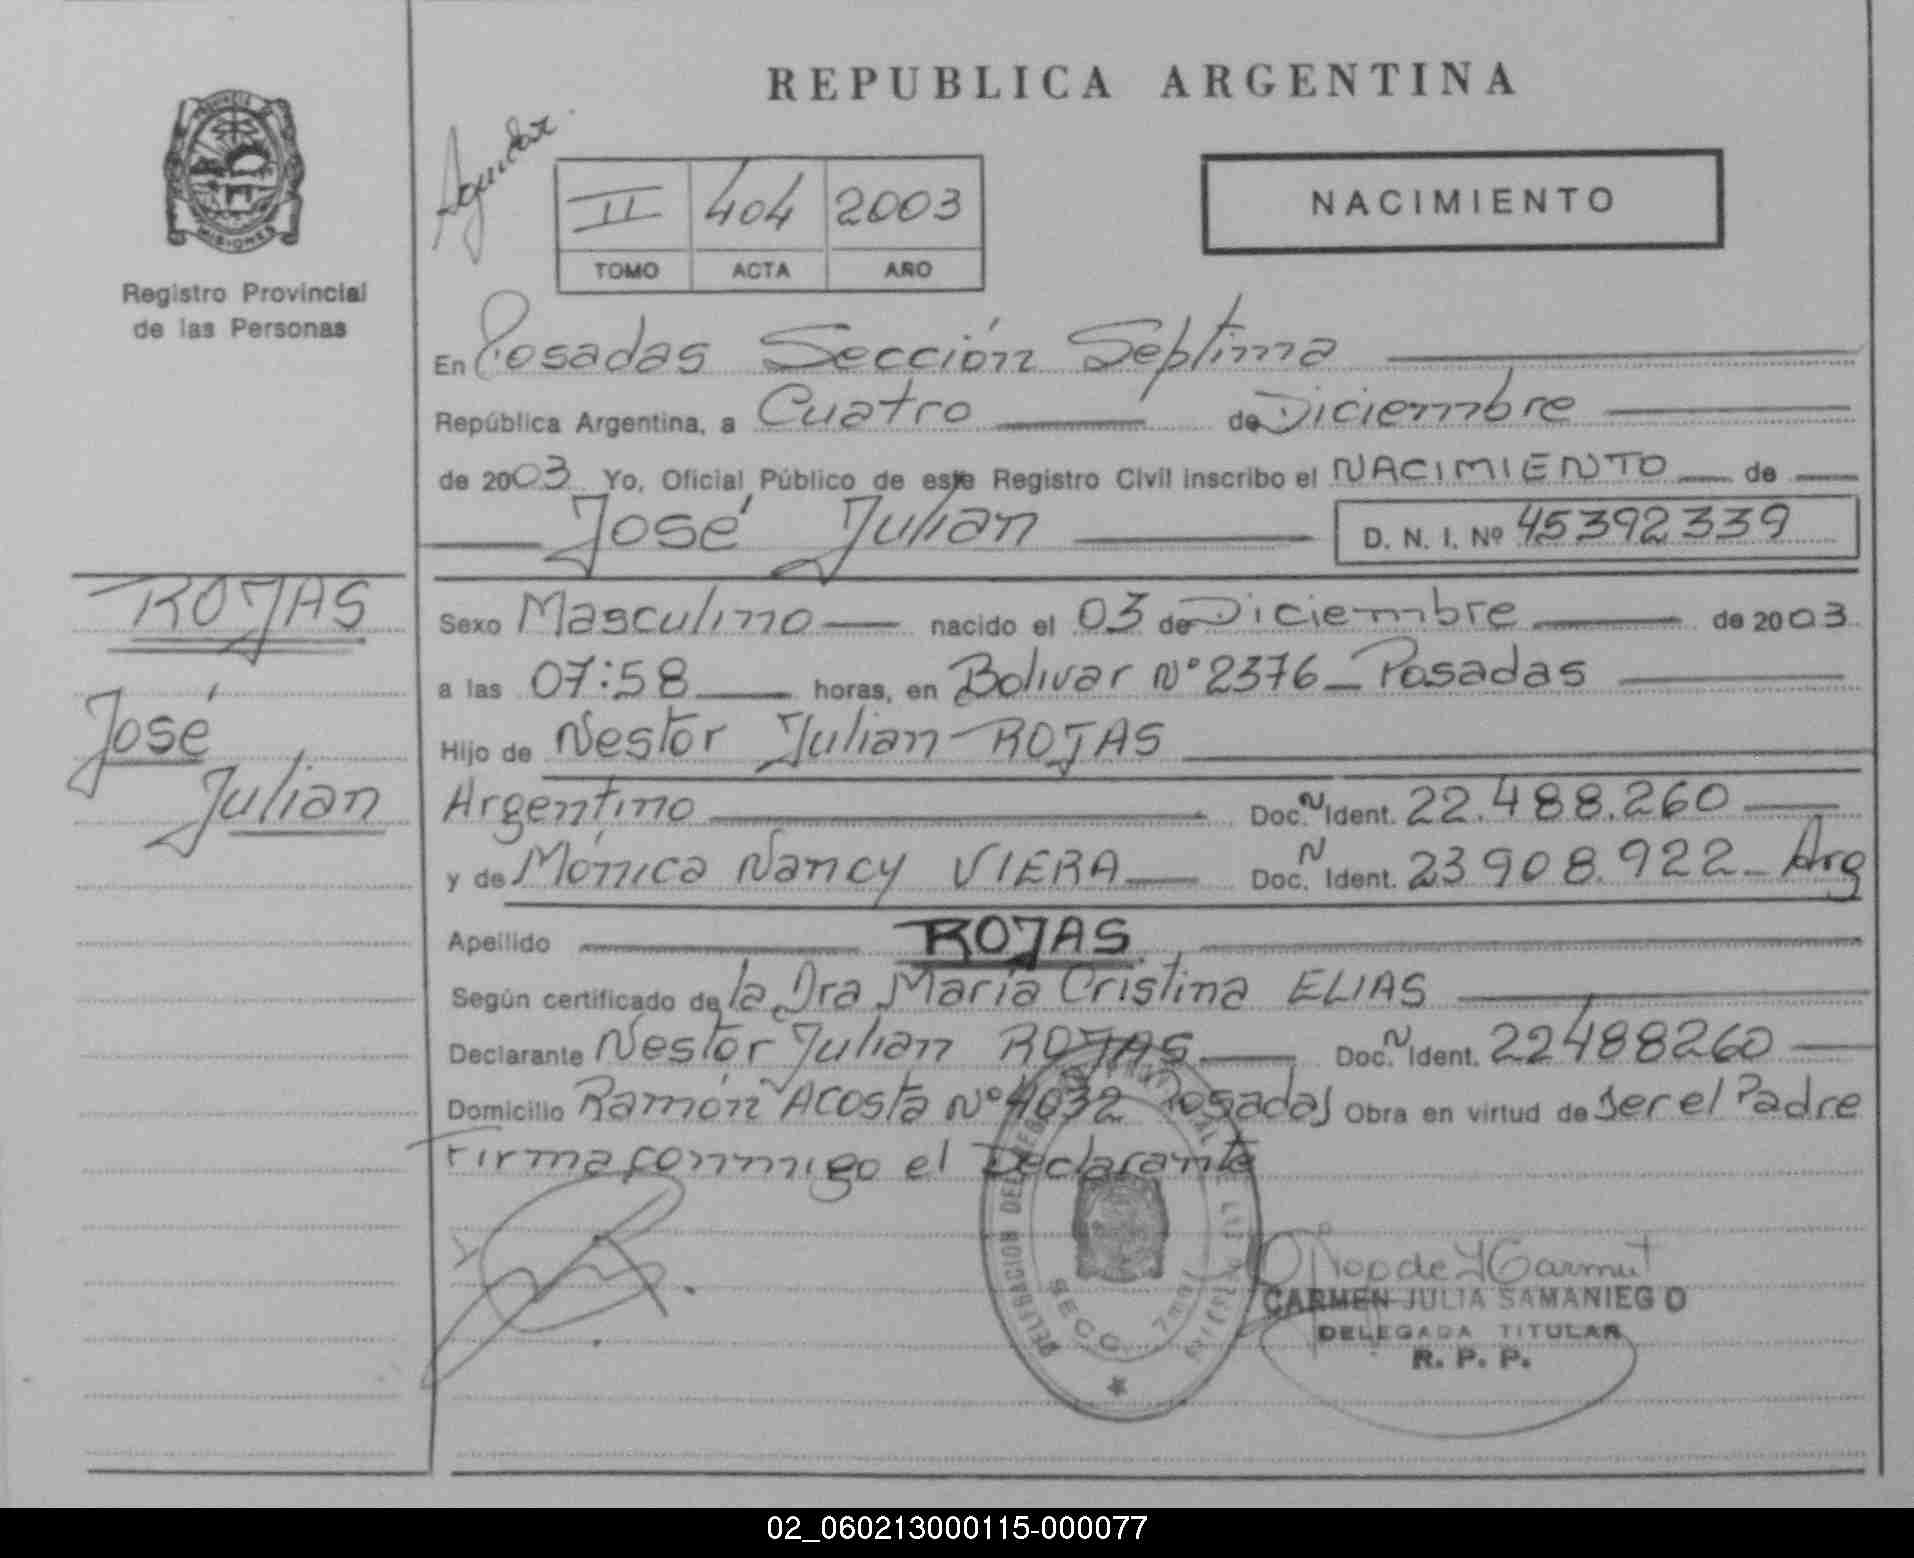 REPUBLICA ARGENTINA
MISIONES
Registro Provincial
de las Personas
II 404 2003
TOMO ACTA AÑO
NACIMIENTO
En Posadas Sección Septima
República Argentina, a Cuatro de Diciembre
de 2003 Yo, Oficial Público de este Registro Civil inscribo el NACIMIENTO de
José Julian D. N. I. Nº 45392339
ROJAS
José
Julian
Sexo Masculino nacido el 03 de Diciembre de 2003
a las 07:58 horas, en Bolivar Nº 2376 _ Posadas
Hijo de Nestor Julian ROJAS
Argentino Doc. N Ident. 22.488.260
y de Mónica Nancy VIERA Doc. N Ident. 23 908.922 _ Arg
Apellido ROJAS
Según certificado de la Dra María Cristina ELIAS
Declarante Nestor Julian ROJAS Doc. N Ident. 22488260
Domicilio Ramón Acosta Nº 4032 Posadas Obra en virtud de ser el Padre
Firma conmigo el Declarante
DELEGACION DEL
SECC. 7ma.
CARMEN JULIA SAMANIEGO
DELEGADA TITULAR
R. P. P.
02_060213000115-000077